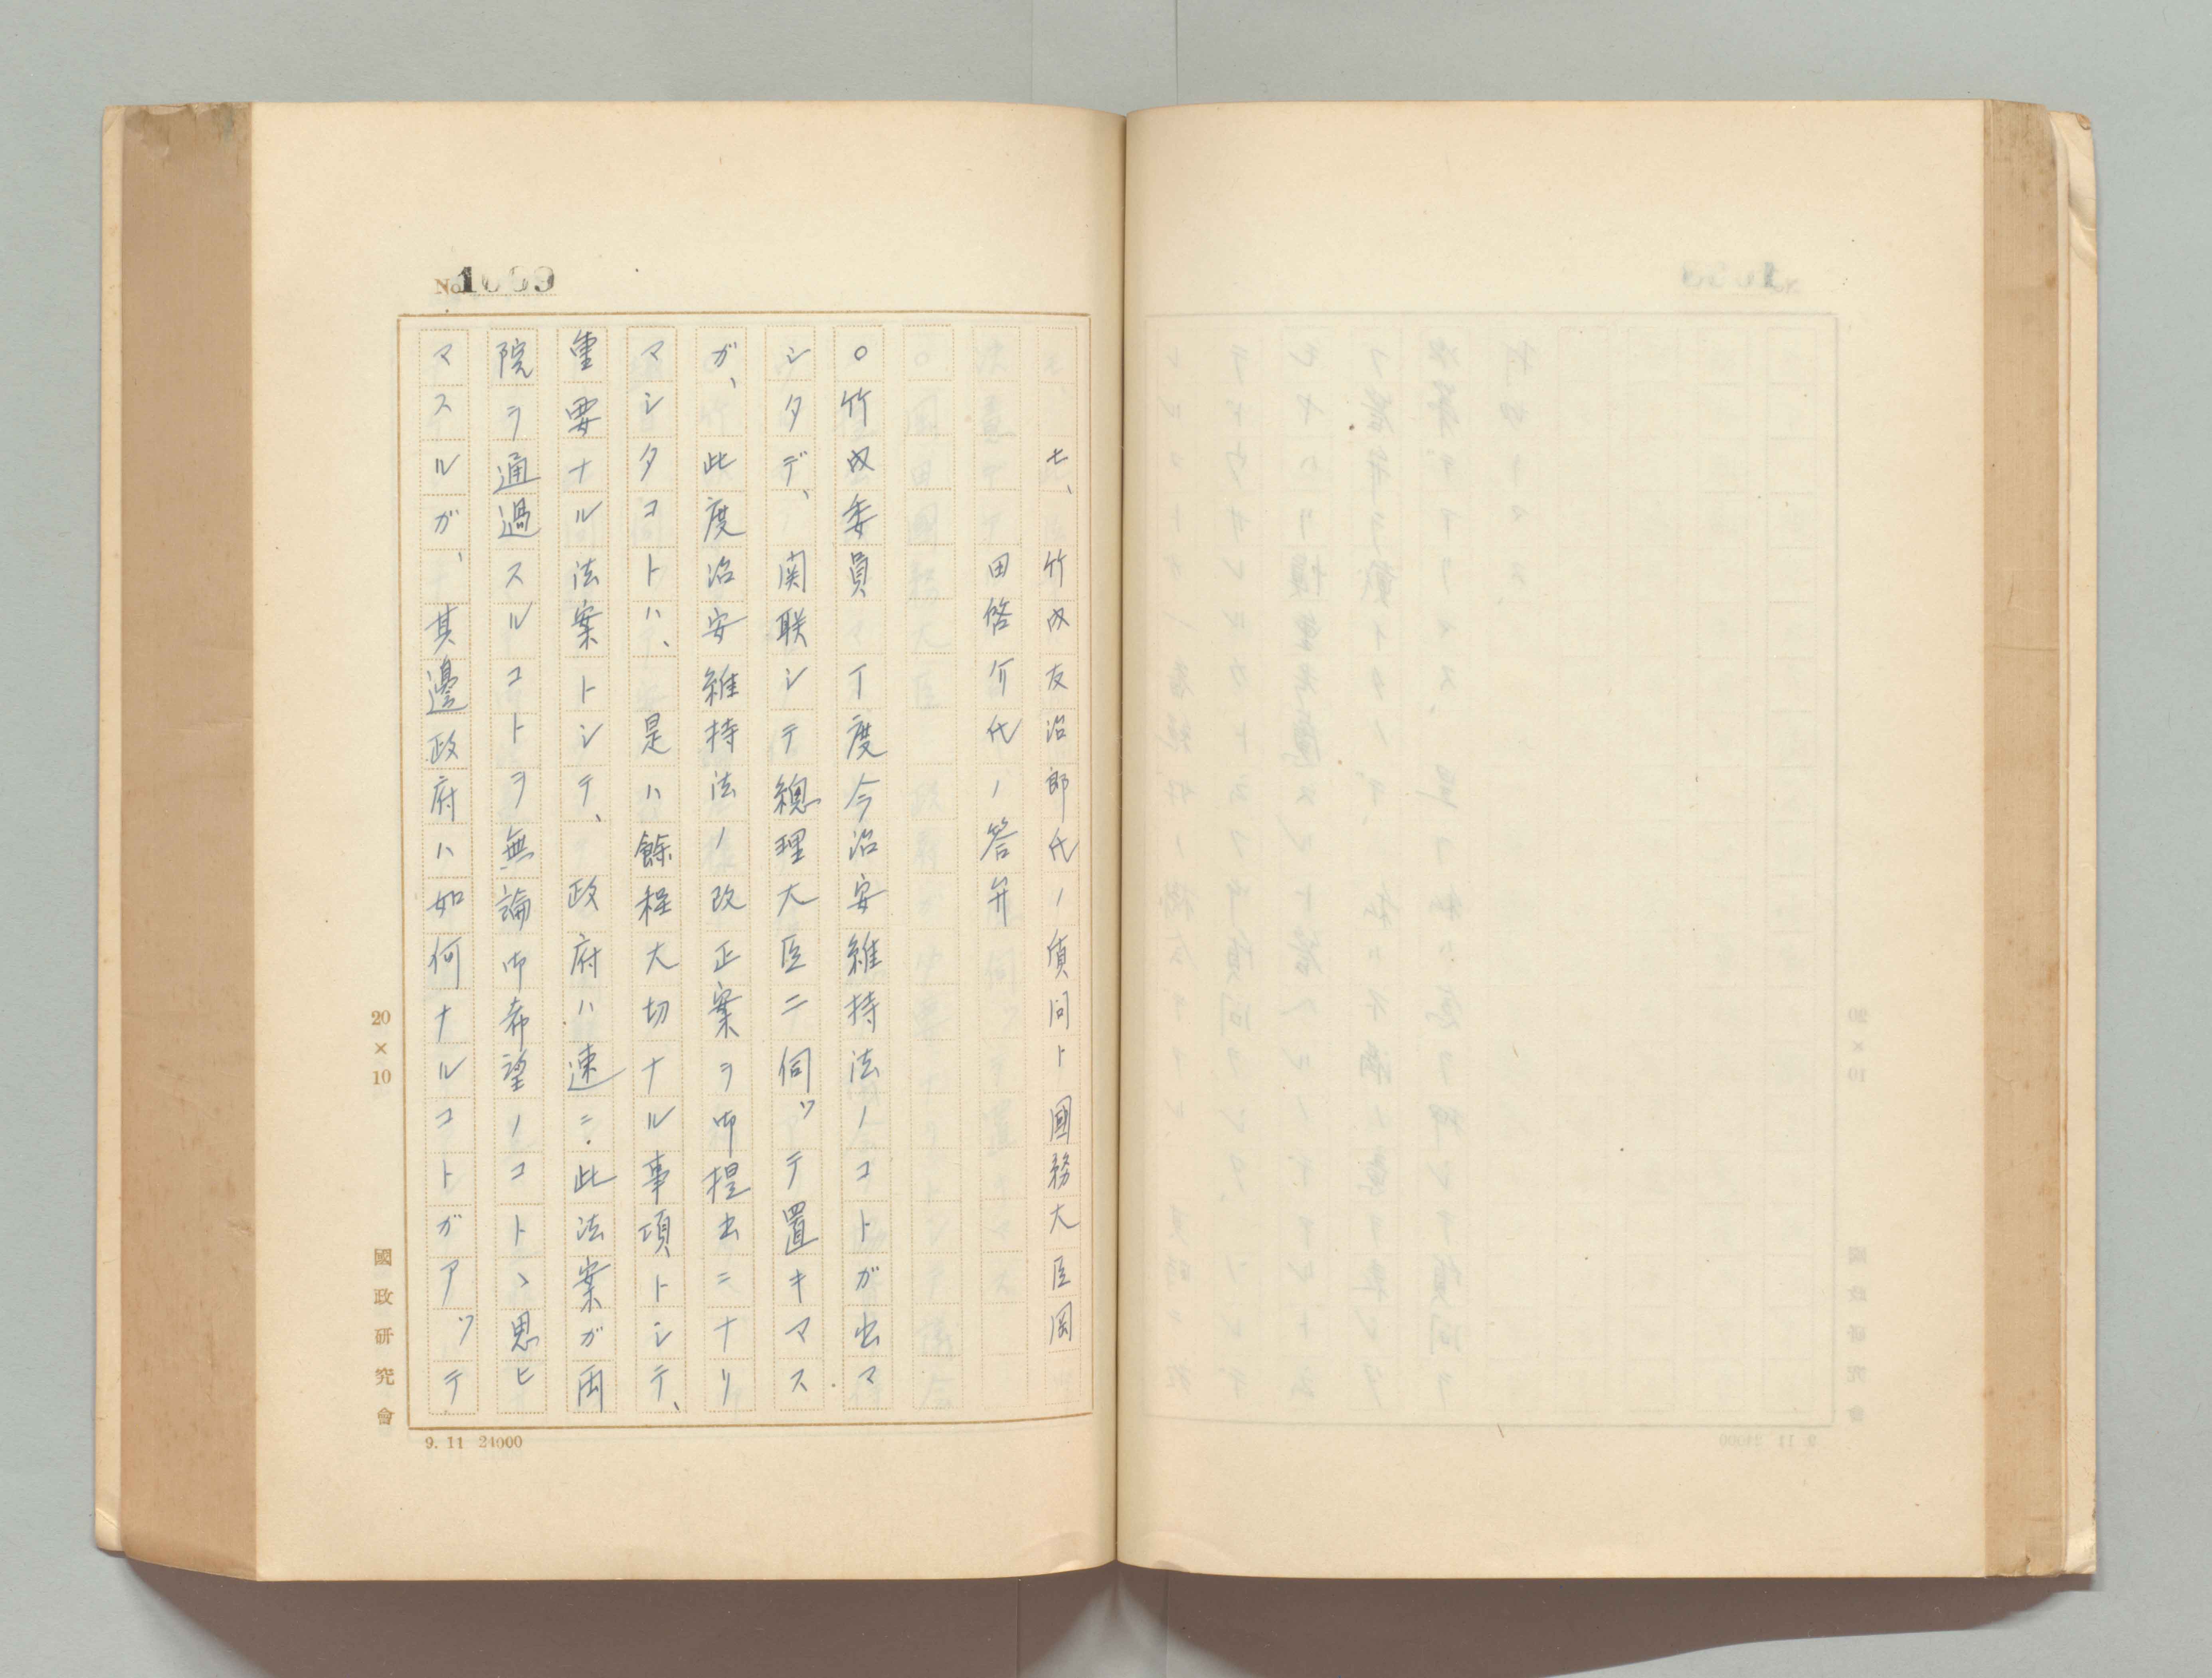 No 1089
七、竹内友治郎氏ノ質問ト國務大臣岡
田啓介氏ノ答弁
○竹内委員　丁度今治安維持法ノコトガ出マ
シタデ、関联シテ總理大臣ニ伺ッテ置キマス
ガ、此度治安維持法ノ改正案ヲ御提出ニナリ
マシタコトハ、是ハ餘程大切ナル事項トシテ、
重要ナル法案トシテ、政府ハ速ニ此法案ガ両
院ヲ通過スルコトヲ無論御希望ノコトヽ思ヒ
マスルガ、其邊政府ハ如何ナルコトガアッテ
20×10
國政研究會
9. 11 24000